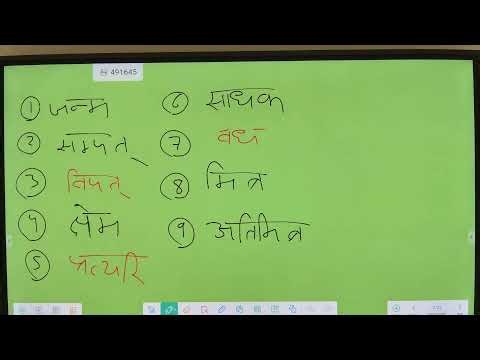 491645
① जन्म
② सम्पत्
③ विपत्
④ क्षेम
⑤ प्रत्यरि
⑥ साधक
⑦ वध
⑧ मित्र
⑨ अतिमित्र